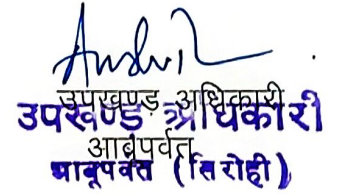 उपखण्ड़ अधिकारी
उपखण्ड अधिकारी
आबूपर्वत
आबूपर्वत (सिरोही)